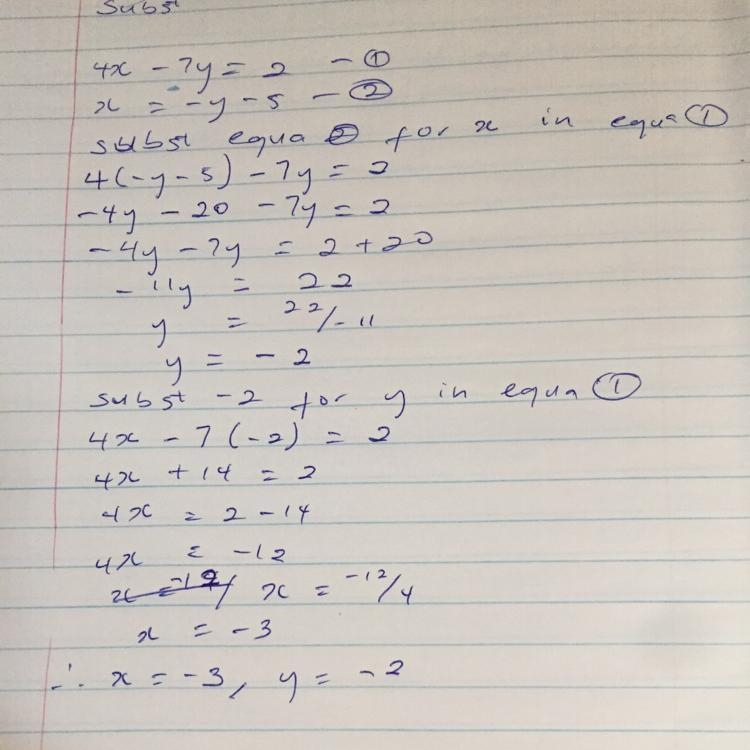 Subst
4x - 7y = 2 - ①
x = -y - 5 - ②
subst equa ② for x in equa ①
4(-y - 5) - 7y = 2
-4y - 20 - 7y = 2
-4y - 7y = 2 + 20
-11y = 22
y = 22/-11
y = - 2
subst -2 for y in equa ①
4x - 7(-2) = 2
4x + 14 = 2
4x = 2 - 14
4x = -12
x = -12/4
x = -3
∴ x = -3, y = -2